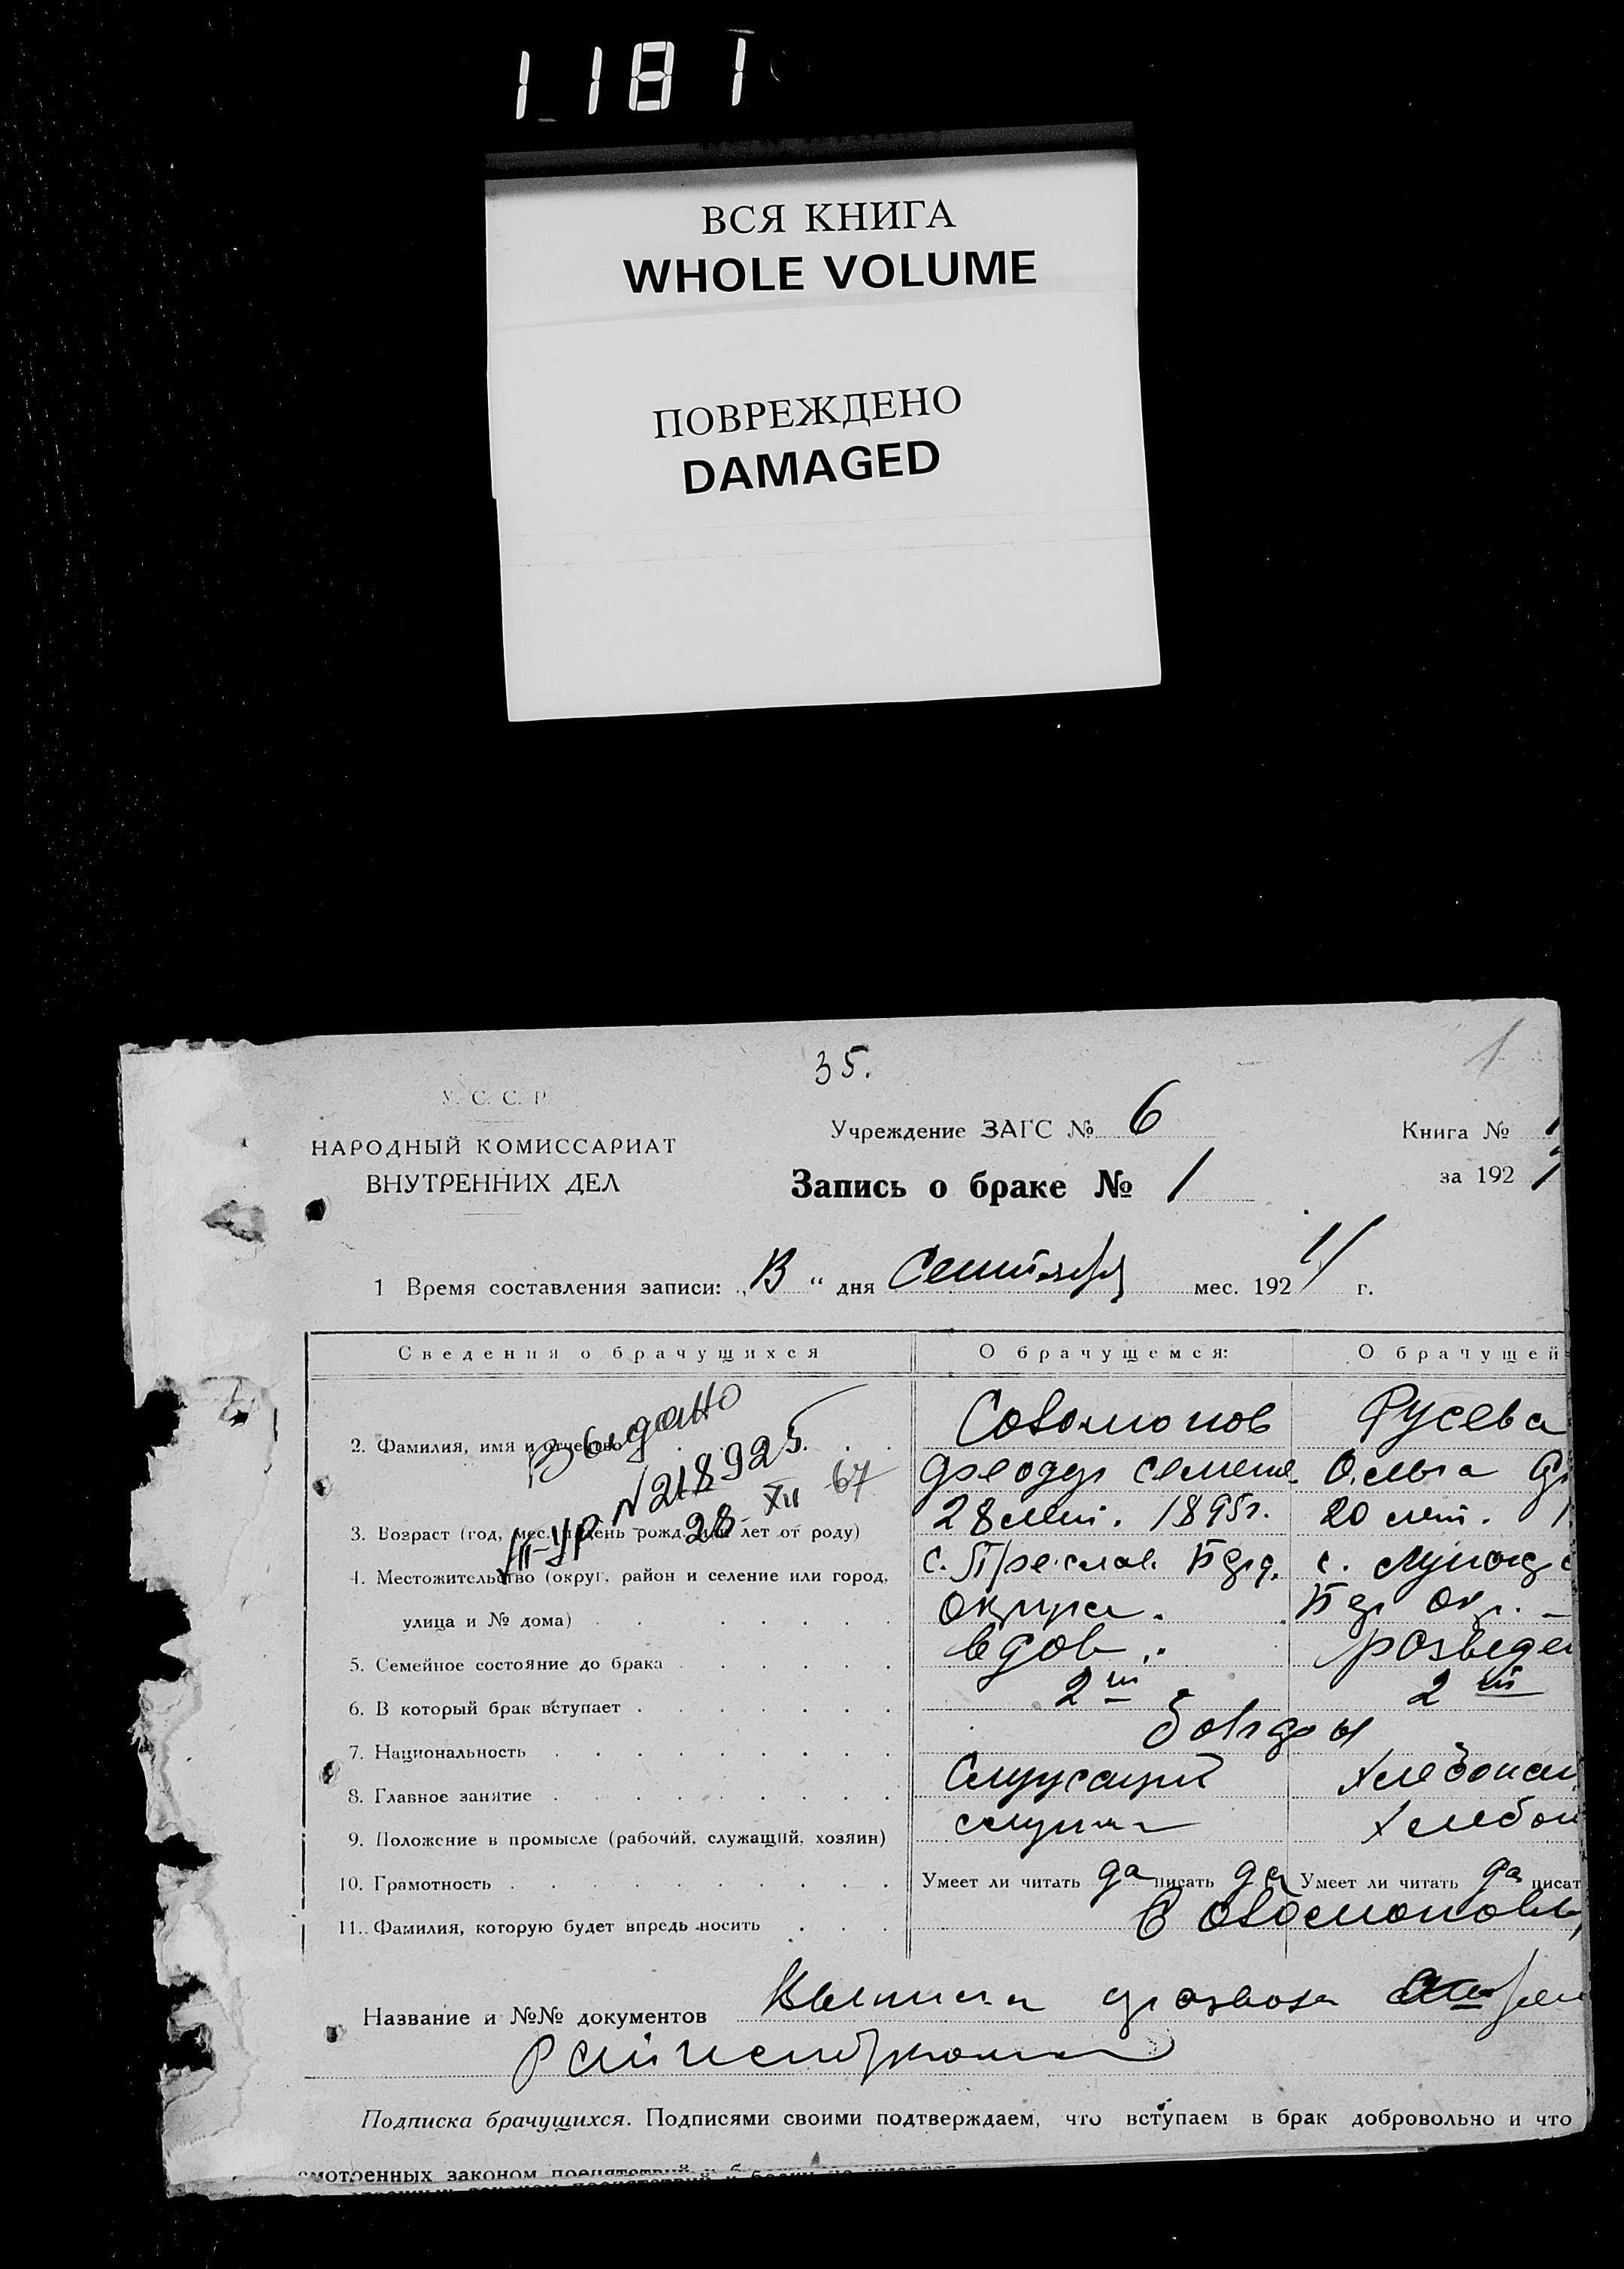 1181
ВСЯ КНИГА
WHOLE VOLUME
ПОВРЕЖДЕНО
DAMAGED
35.
1
У. С. С. Р
НАРОДНЫЙ КОМИССАРИАТ
ВНУТРЕННИХ ДЕЛ
Учреждение ЗАГС № 6
Книга № 1
Запись о браке № 1
за 192
1 Время составления записи: „ “ дня мес. 192 г.
Сведения о брачущихся
О брачущемся:
О брачущей
Выдано
№ 218925
28 XII 67
2. Фамилия, имя и отчество
Соломонов
Русева
Феодор Семен.
Ольга
3. Возраст (год, мес. и день рожд. или лет от роду)
28 лет. 1895г.
20 лет.
4. Местожительство (округ, район и селение или город,
с. Преслав
с.
улица и № дома)
округа.
5. Семейное состояние до брака
вдов.
розведен
6. В который брак вступает
2й
2й
7. Национальность
болгары
8. Главное занятие
Служащий
хлебопаш
9. Положение в промысле (рабочий, служащий, хозяин)
хлебоп
10. Грамотность
Умеет ли читать да писать да
Умеет ли читать да писат
11. Фамилия, которую будет впредь носить
Соломоновы
Название и №№ документов Выписка развода
Райисполкома
Подписка брачущихся. Подписями своими подтверждаем, что вступаем в брак добровольно и что
смотренных законом препятствий к